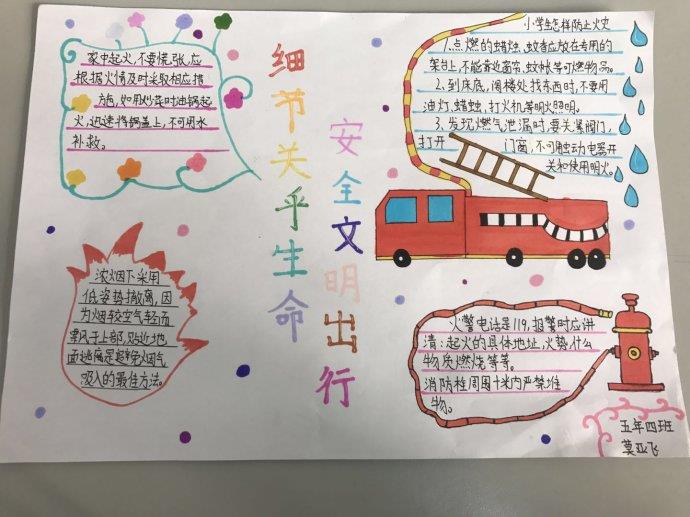 家中起火,不要慌张,应
根据火情及时采取相应措
施,如用炒菜时油锅起
火,迅速将锅盖上,不可用水
补救。
细节关乎生命
安全文明出行
小学生怎样防止火灾
1.点燃的蜡烛、蚊香应放在专用的
架台上,不能靠近窗帘、蚊帐等可燃物品。
2.到床底、阁楼处找东西时,不要用
油灯、蜡烛、打火机等明火照明。
3、发现燃气泄漏时,要关紧阀门,
打开 门窗,不可触动电器开
关和使用明火。
浓烟下采用
低姿势撤离,因
为烟较空气轻而
飘于上部,贴近地
面逃离是避免烟气
吸入的最佳方法。
火警电话是119,报警时应讲
清:起火的具体地址,火势什么
物质燃烧等等。
消防栓周围十米内严禁堆
物。
五年四班
莫亚飞